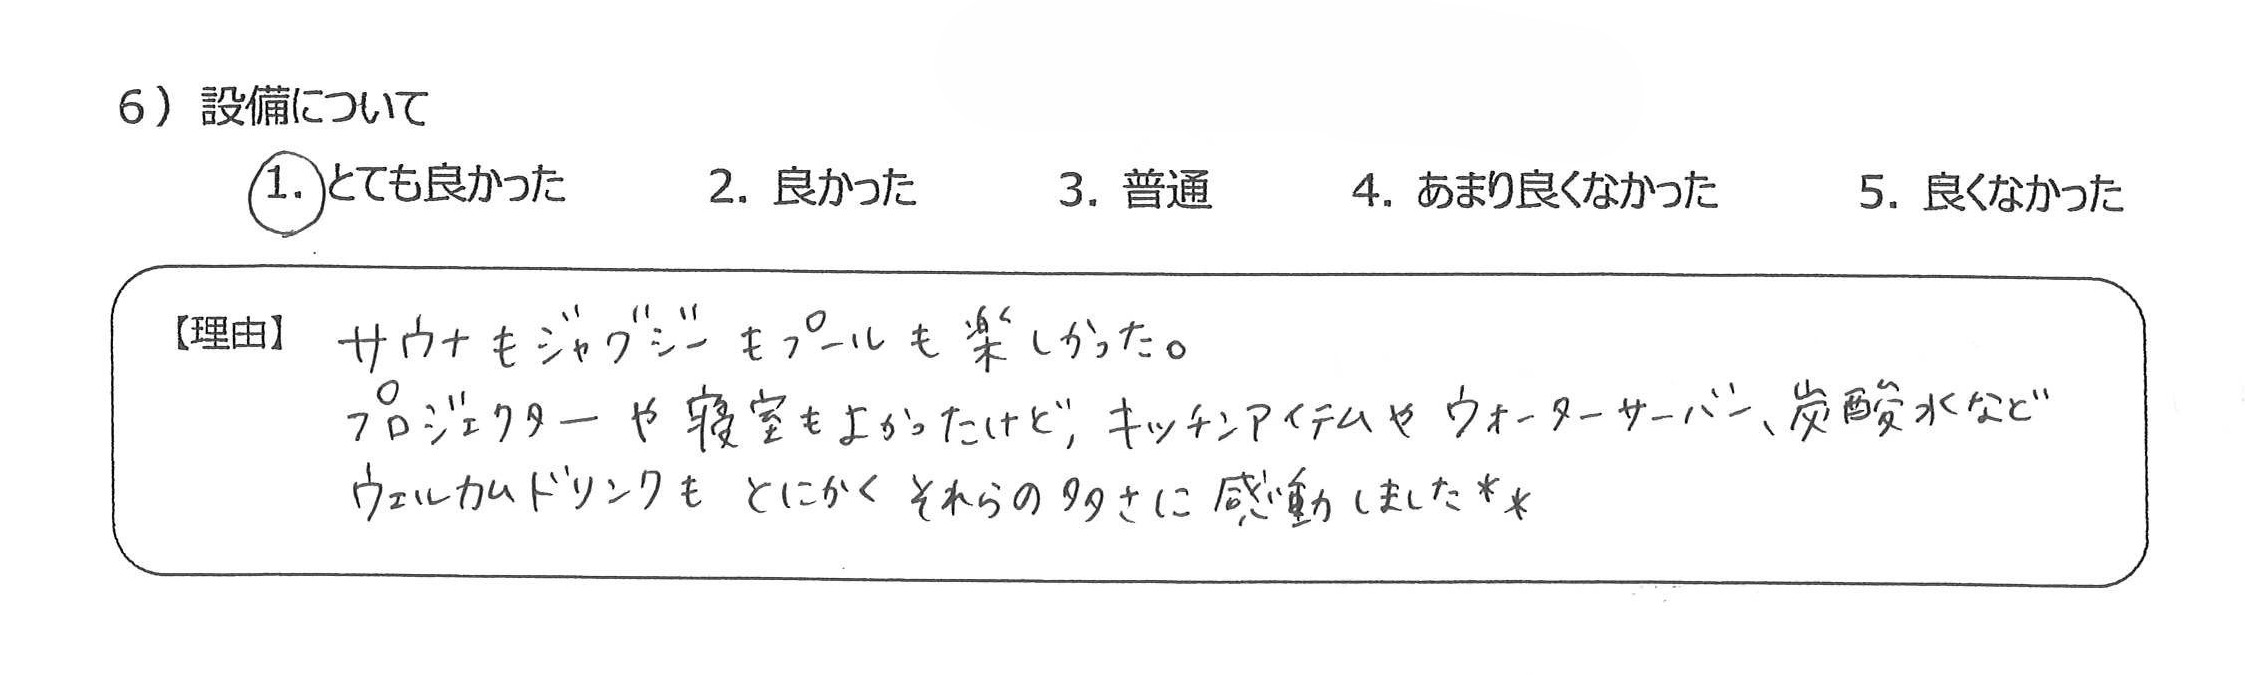 6）設備について
1. とても良かった 2. 良かった 3. 普通 4. あまり良くなかった 5. 良くなかった
【理由】 サウナもジャグジーもプールも楽しかった。
プロジェクターや寝室もよかったけど、キッチンアイテムやウォーターサーバー、炭酸水など
ウェルカムドリンクも とにかく それらの多さに感動しました**